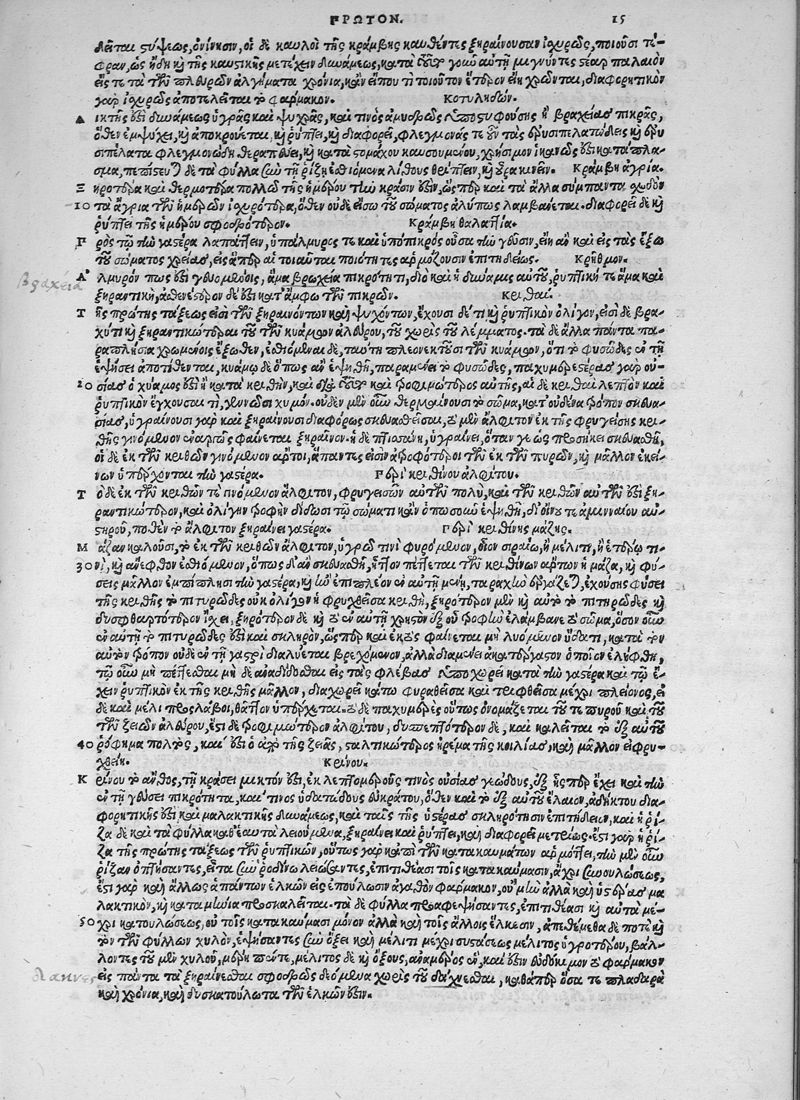 ΠΡΩΤΟΝ. 15
δεῖται στύψεως, ὀνίνησιν, οἱ δὲ καυλοὶ τῆς κράμβης καυθέντες ξηραίνουσιν ἰσχυρῶς, ποιοῦσι τέ-
φραν, ὡς ἤδη καὶ τῆς καυστικῆς μετέχειν δυνάμεως, κατὰ τοῦτο γοῦν αὐτῇ μιγνύντες στέαρ παλαιὸν
εἴς τε τὰ τῶν πλευρῶν ἀλγήματα χρόνια, κἂν εἴπου τι τοιοῦτον ἕτερον εἴη χρῶνται, διαφορητικὸν
γὰρ ἰσχυρῶς ἀποτελεῖται τὸ φάρμακον. Κοτυληδών.
Δ ικτῆς ἐστὶ δυνάμεως ὑγρᾶς καὶ ψυχρᾶς, καί τινος ἀμυδρῶς ὑποστυφούσης ἢ βραχείας πικρᾶς,
ὅθεν ἐμψύχει, καὶ ἀποκρούεται, καὶ ῥύπτει, καὶ διαφορεῖ, φλεγμονάς τε οὖν τὰς ἐρυσιπελατώδεις καὶ ἐρυ
σιπέλατα φλεγμονώδη θεραπεύει, καὶ κατὰ στομάχου καυσουμένου, χρήσιμον ἱκανῶς ἐστὶ κατάπλα-
σμα, πεπίστευται δὲ τὰ φύλλα σὺν τῇ ῥίζῃ ἐσθιόμενα λίθους θρύπτειν, καὶ οὐρα κινεῖν. Κράμβη ἀγρία.
Ξ ηροτέρα καὶ θερμοτέρα πολλῷ τῆς ἡμέρου τὴν κρᾶσίν ἐστιν, ὥσπερ καὶ τὰ ἄλλα σύμπαντα σχεδὸν
10 τὰ ἄγρια τῶν ἡμέρων ἰσχυρότερα, ὅθεν οὐδὲ εἴσω τοῦ σώματος ἀλύπως λαμβάνεται. διαφορεῖ δὲ καὶ
ῥύπτει τῆς ἡμέρου σφοδρότερον. Κράμβη θαλαττία.
Π ρὸς τῷ τὴν γαστέρα λαπάττειν, ὑπάλμυρός τε καὶ ὑπόπικρος οὖσα τὴν γεῦσιν, εἴη ἂν καὶ εἰς τὰς ἔξω
τοῦ σώματος χρείας, εἰς ἅπερ αἱ τοιαῦται ποιότητες ἁρμόζουσιν ἐπιτήδειος. Κρῆθμον.
Α λμυρόν πως ἐστὶ γευομένοις, ἅμα βρωχεία πικρότητι, διὸ καὶ ἡ δύναμις αὐτοῦ, ῥυπτική τε ἅμα καὶ
βραχεία
ξηραντική, ἀσθενέστερον δέ ἐστι κατ᾽ ἄμφω τῶν πικρῶν. Κριθαί.
Τ ῆς πρώτης τάξεώς εἰσι τῶν ξηραινόντων καὶ ψυχόντων, ἔχουσι δέ τι καὶ ῥυπτικὸν ὀλίγον, εἰσὶ δὲ βρα-
χύ τι καὶ ξηραντικώτεραι τοῦ τῶν κυάμων ἀλεύρου, τοῦ χωρὶς τοῦ λέμματος. τὰ δὲ ἄλλα πάντα πα-
ραπλήσια χρωμένοις ἔξωθεν, ἐσθιόμεναι δὲ, ταύτῃ πλεονεκτοῦσι τῶν κυάμων, ὅτι τὸ φυσῶδες ἐν τῇ
ἑψήσει ἀποτίθενται, κυάμῳ δὲ ὅπως ἂν ἑψηθῇ, παραμένει τὸ φυσῶδες, παχυμερεστέρας γὰρ οὐ-
20 σίας ὁ κύαμός ἐστιν ἢ κατὰ κριθὴν, καὶ διὰ τοῦτο καὶ τροφιμώτερος αὐτῆς, αἱ δὲ κριθαὶ λεπτὸν καὶ
ῥυπτικὸν ἔχουσαί τι, γεννῶσι χυμόν. οὐδὲν μὲν οὖν θερμαίνουσι τὸ σῶμα, κατ᾽ οὐδένα τρόπον σκευα-
σίας, ὑγραίνουσι γὰρ καὶ ξηραίνουσι διαφόρως σκευασθεῖσαι, τὸ μὲν ἄλφιτον ἐκ τῆς φρυγείσης κρι-
θῆς γινόμενον ἐναργῶς φαίνεται ξηραῖνον. ἡ δὲ πτισσάνη, ὑγραίνει, ὅταν γε ὡς προσήκει σκευασθῇ,
οἱ δὲ ἐκ τῶν κριθῶν γινόμενοι ἄρτοι, ἅπαντές εἰσιν ἀτροφότεροι τῶν ἐκ τῶν πυρῶν, καὶ μᾶλλον ἐκεί-
νων ὑπέρχονται τὴν γαστέρα. Περὶ κριθίνου ἀλφίτου.
Τ ὸ δὲ ἐκ τῶν κριθῶν γινόμενον ἄλφιτον, φρυγεισῶν αὐτῶν πολὺ, καὶ τῶν κριθῶν αὐτῶν ἐστὶ ξη-
ραντικώτερον, καὶ ὀλίγην τροφὴν δίδωσι τῷ σώματι κἂν ὁπωσοῦν ἑψηθῇ, δι᾽ οἴνου τε ἀμιναίου αὐ-
στηροῦ, ποθὲν τὸ ἄλφιτον ξηραίνει γαστέρα. Περὶ κριθίνης μάζης.
Μ άζαν καλοῦσι, τὸ ἐκ τῶν κριθῶν ἄλφιτον, ὑγρῷ τινὶ φυρόμενον, οἷον σιραίῳ, ἢ μέλιτι, ἢ ἑτέρῳ τι-
30 νὶ, καὶ ἄνεφθον ἐσθιόμενον, ὅπως δ᾽ ἂν σκευασθῇ, ἧττον πέττεται τῶν κριθίνων ἄρτων ἡ μάζα, καὶ φύ-
σεις μᾶλλον ἐμπίπλησι τὴν γαστέρα, καὶ ἢν ἐπιπλέον ἐν αὐτῇ μείνῃ, ταραχὴν ἐργάζεται, ἐχούσης φύσει
τῆς κριθῆς τὸ πιτυρῶδες οὐκ ὀλίγον ἡ φρυχθεῖσα κριθὴ, ξηρότερον μὲν καὶ αὐτὸ τὸ πιτηρῶδες καὶ
δυσφθαρτότερον ἴσχει, ξηρότερον δὲ καὶ τὸ ἐν αὐτῇ χρηστὸν ἐξ οὗ τροφὴν ἐλάμβανε τὸ σῶμα, ὅσον οὖν
ἐν αὐτῇ τὸ πιτυρῶδές ἐστι καὶ σκληρὸν, ὥσπερ καὶ ἐκτὸς φαίνεται μὴ λυόμενον ὕδατι, κατὰ τὸν
αὐτὸν τρόπον οὐδὲ ἐν τῇ γαστρὶ διαλύεται βρεχόμενον, ἀλλὰ διαμένει ἀκατέργαστον ὁποῖον ἐλήφθη,
τῷ οὖν μὴ πέττεσθαι μὴ δὲ ἀναδίδοσθαι εἰς τὰς φλέβας ὑποχωρεῖ κατὰ τὴν γαστέρα καὶ τῷ ἔ-
χειν ῥυπτικὸν ἐκ τῆς κριθῆς μᾶλλον, διαχωρεῖ κάτω φυραθεῖσα καὶ τριφθεῖσα μέχρι πλείονος, εἰ
δὲ καὶ μέλι προσλάβοι, θᾶττον ὑπέρχεται. τὸ δὲ παχυμερὲς οὕπως ὀνομάζεται τοῦ τε πυροῦ καὶ τοῦ
τῶν ζειῶν ἀλεύρου, ἔστι δὲ τροφιμώτερον ἀλφίτου, δυσπεπτότερον δὲ, καὶ καλεῖται τὸ ἐξ αὐτοῦ
40 ῥόφημα πολτὸς, καί ἐστι ὁ ἀπὸ τῆς ζειᾶς, σταλτικώτερος ἠρέμα τῆς κοιλίας, καὶ μᾶλλον εἰ φρυ-
χθείη. Κρίνου.
Κ ρίνου τὸ ἄνθος, τῇ κράσει μικτόν ἐστι, ἐκ λεπτομεροῦς τινὸς οὐσίας γεώδους, ἐξ ἧσπερ ἔχει καὶ τὴν
ἐν τῇ γεύσει πικρότητα, καί τινος ὑδατώδους εὐκράτου, ὅθεν καὶ τὸ ἐξ αὐτοῦ ἔλαιον, ἀδήκτου δια-
φορητικῆς ἐστὶ καὶ μαλακτικῆς δυνάμεως, καὶ ταῖς τῆς ὑστέρας σκληρότησιν ἐπιτήδειον, καὶ ἡ ῥί
ζα δὲ καὶ τὰ φύλλα καθ᾽ ἑαυτὰ λειούμενα, ξηραίνει καὶ ῥύπτει, καὶ διαφορεῖ μετρίως. ἔστι γὰρ ἡ ῥί-
ζα τῆς πρώτης τάξεως τῶν ῥυπτικῶν, οὕτως γὰρ καὶ ἐπὶ τῶν κατακαυμάτων ἁρμόττει, τὴν μὲν οὖν
ῥίζαν ὀπτήσαντες, εἶτα σὺν ῥοδίνῳ λειώσαντες, ἐπιτιθέασι τοῖς κατακαύμασιν, ἄχρι συνουλώσεως,
ἔστι γὰρ καὶ ἄλλως ἁπάντων ἑλκῶν εἰς ἐπούλωσιν ἀγαθὸν φάρμακον, οὐ μὴν ἀλλὰ καὶ ὑστέρας μα
λακτικὸν, καὶ καταμήνια προσκαλεῖται. τὰ δὲ φύλλα προαφεψήσαντες, ἐπιτιθέασι καὶ αὐτὰ μέ-
50 χρι κατουλώσεως, οὐ τοῖς κατακαύμασι μόνον ἀλλὰ καὶ τοῖς ἄλλοις ἕλκεσιν, ἀπεθέμεθα δέ ποτε καὶ
τὸν τῶν φύλλων χυλὸν, ἑψήσαντες σὺν ὄξει καὶ μέλιτι μέχρι συστάσεως μέλιτος ὑγροτέρου, βάλ-
λοντες τοῦ μὲν χυλοῦ, μέρη πέντε, μέλιτος δὲ καὶ ὄξους, ἀνὰ μέρος ἓν, καί ἐστιν εὐδόκιμον τὸ φάρμακον
εἰς πάντα τὰ ξηραίνεσθαι σφοδρῶς δεόμενα χωρὶς τοῦ δάκνεσθαι, καθάπερ ὅσα τε πλαδαρὰ
καὶ χρόνια, καὶ δυσκατούλωτα τῶν ἑλκῶν ἐστιν.